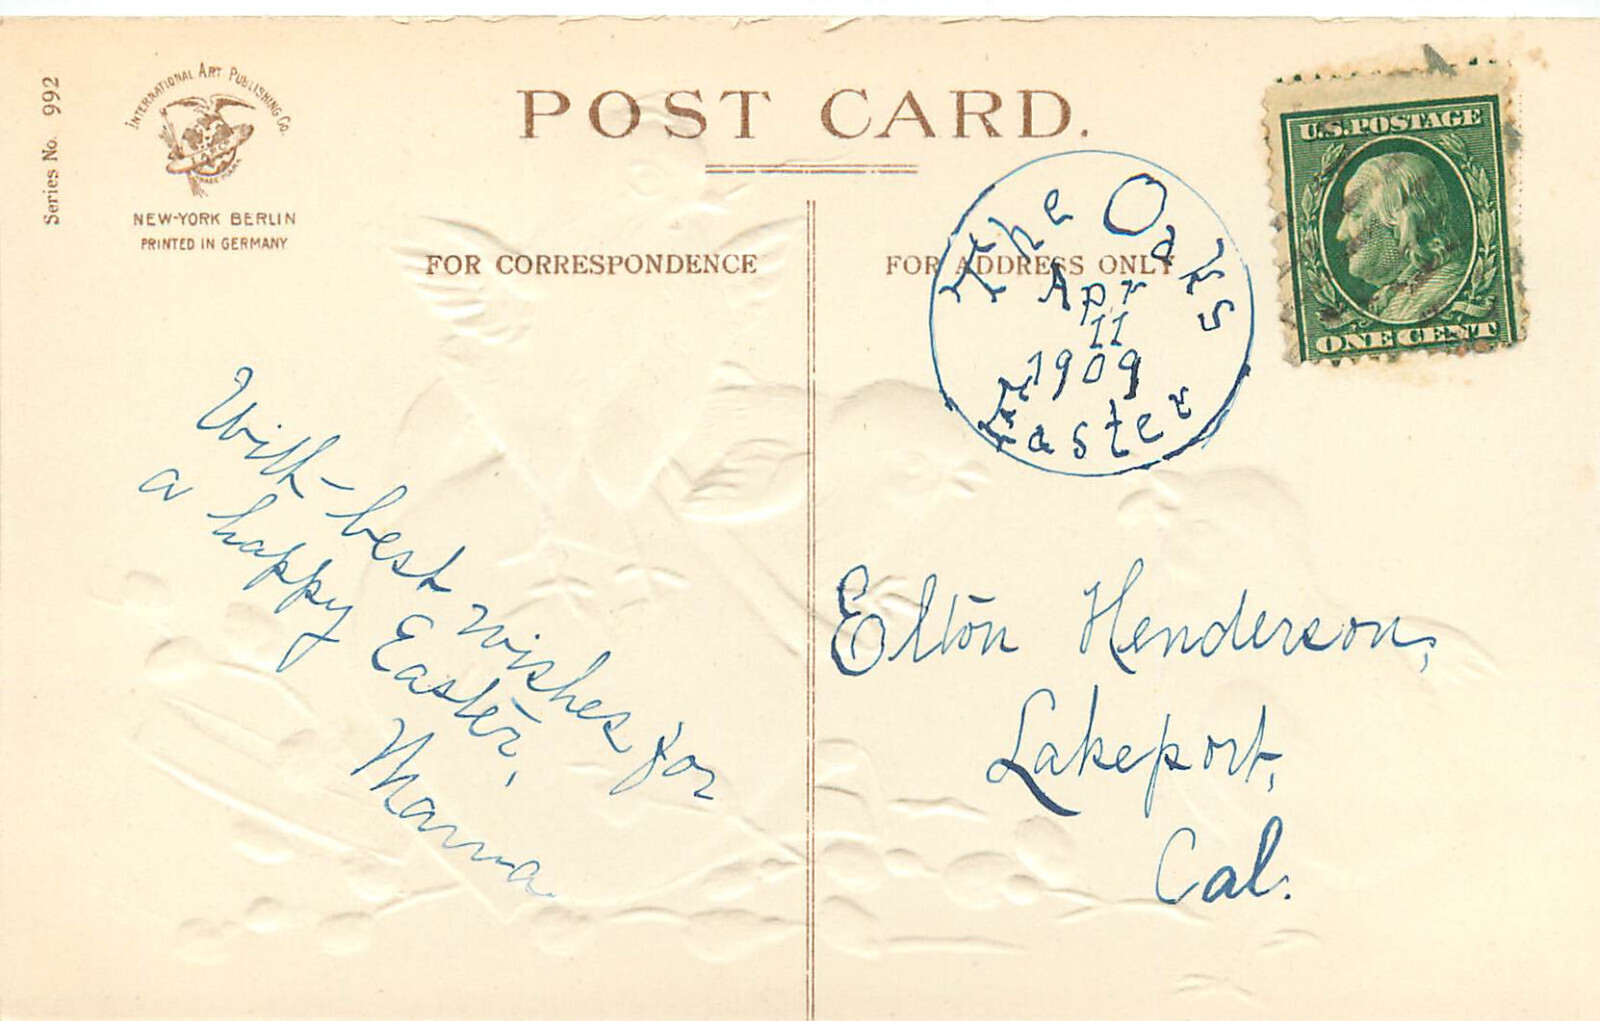 Series No. 992
INTERNATIONAL ART PUBLISHING CO.
TRADE MARK
NEW-YORK BERLIN
PRINTED IN GERMANY
POST CARD.
FOR CORRESPONDENCE
FOR ADDRESS ONLY
U.S. POSTAGE
ONE CENT
The Oaks
Apr
11
1909
Easter
With best wishes for
a happy Easter,
Mama
Elton Henderson,
Lakeport,
Cal.